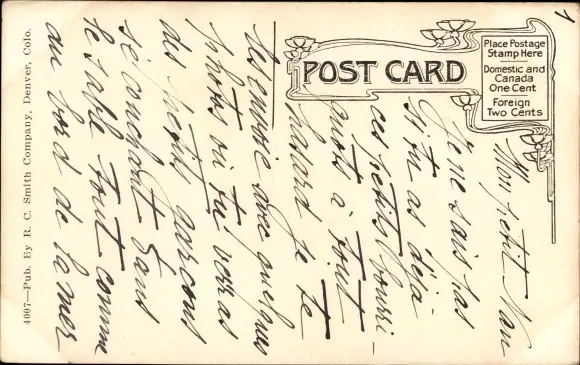 POST CARD
Place Postage
Stamp Here
Domestic and
Canada
One Cent
Foreign
Two Cents
Mon petit Nan
Je ne sais pas
si tu as déjà
ces petits bouri-
quots à tout
hasard je te
les envoie avec quelques
photos où tu verras
des petits garçons
se couchant dans
le sable tout comme
au bord de la mer
4007—Pub. By R. C. Smith Company, Denver, Colo.